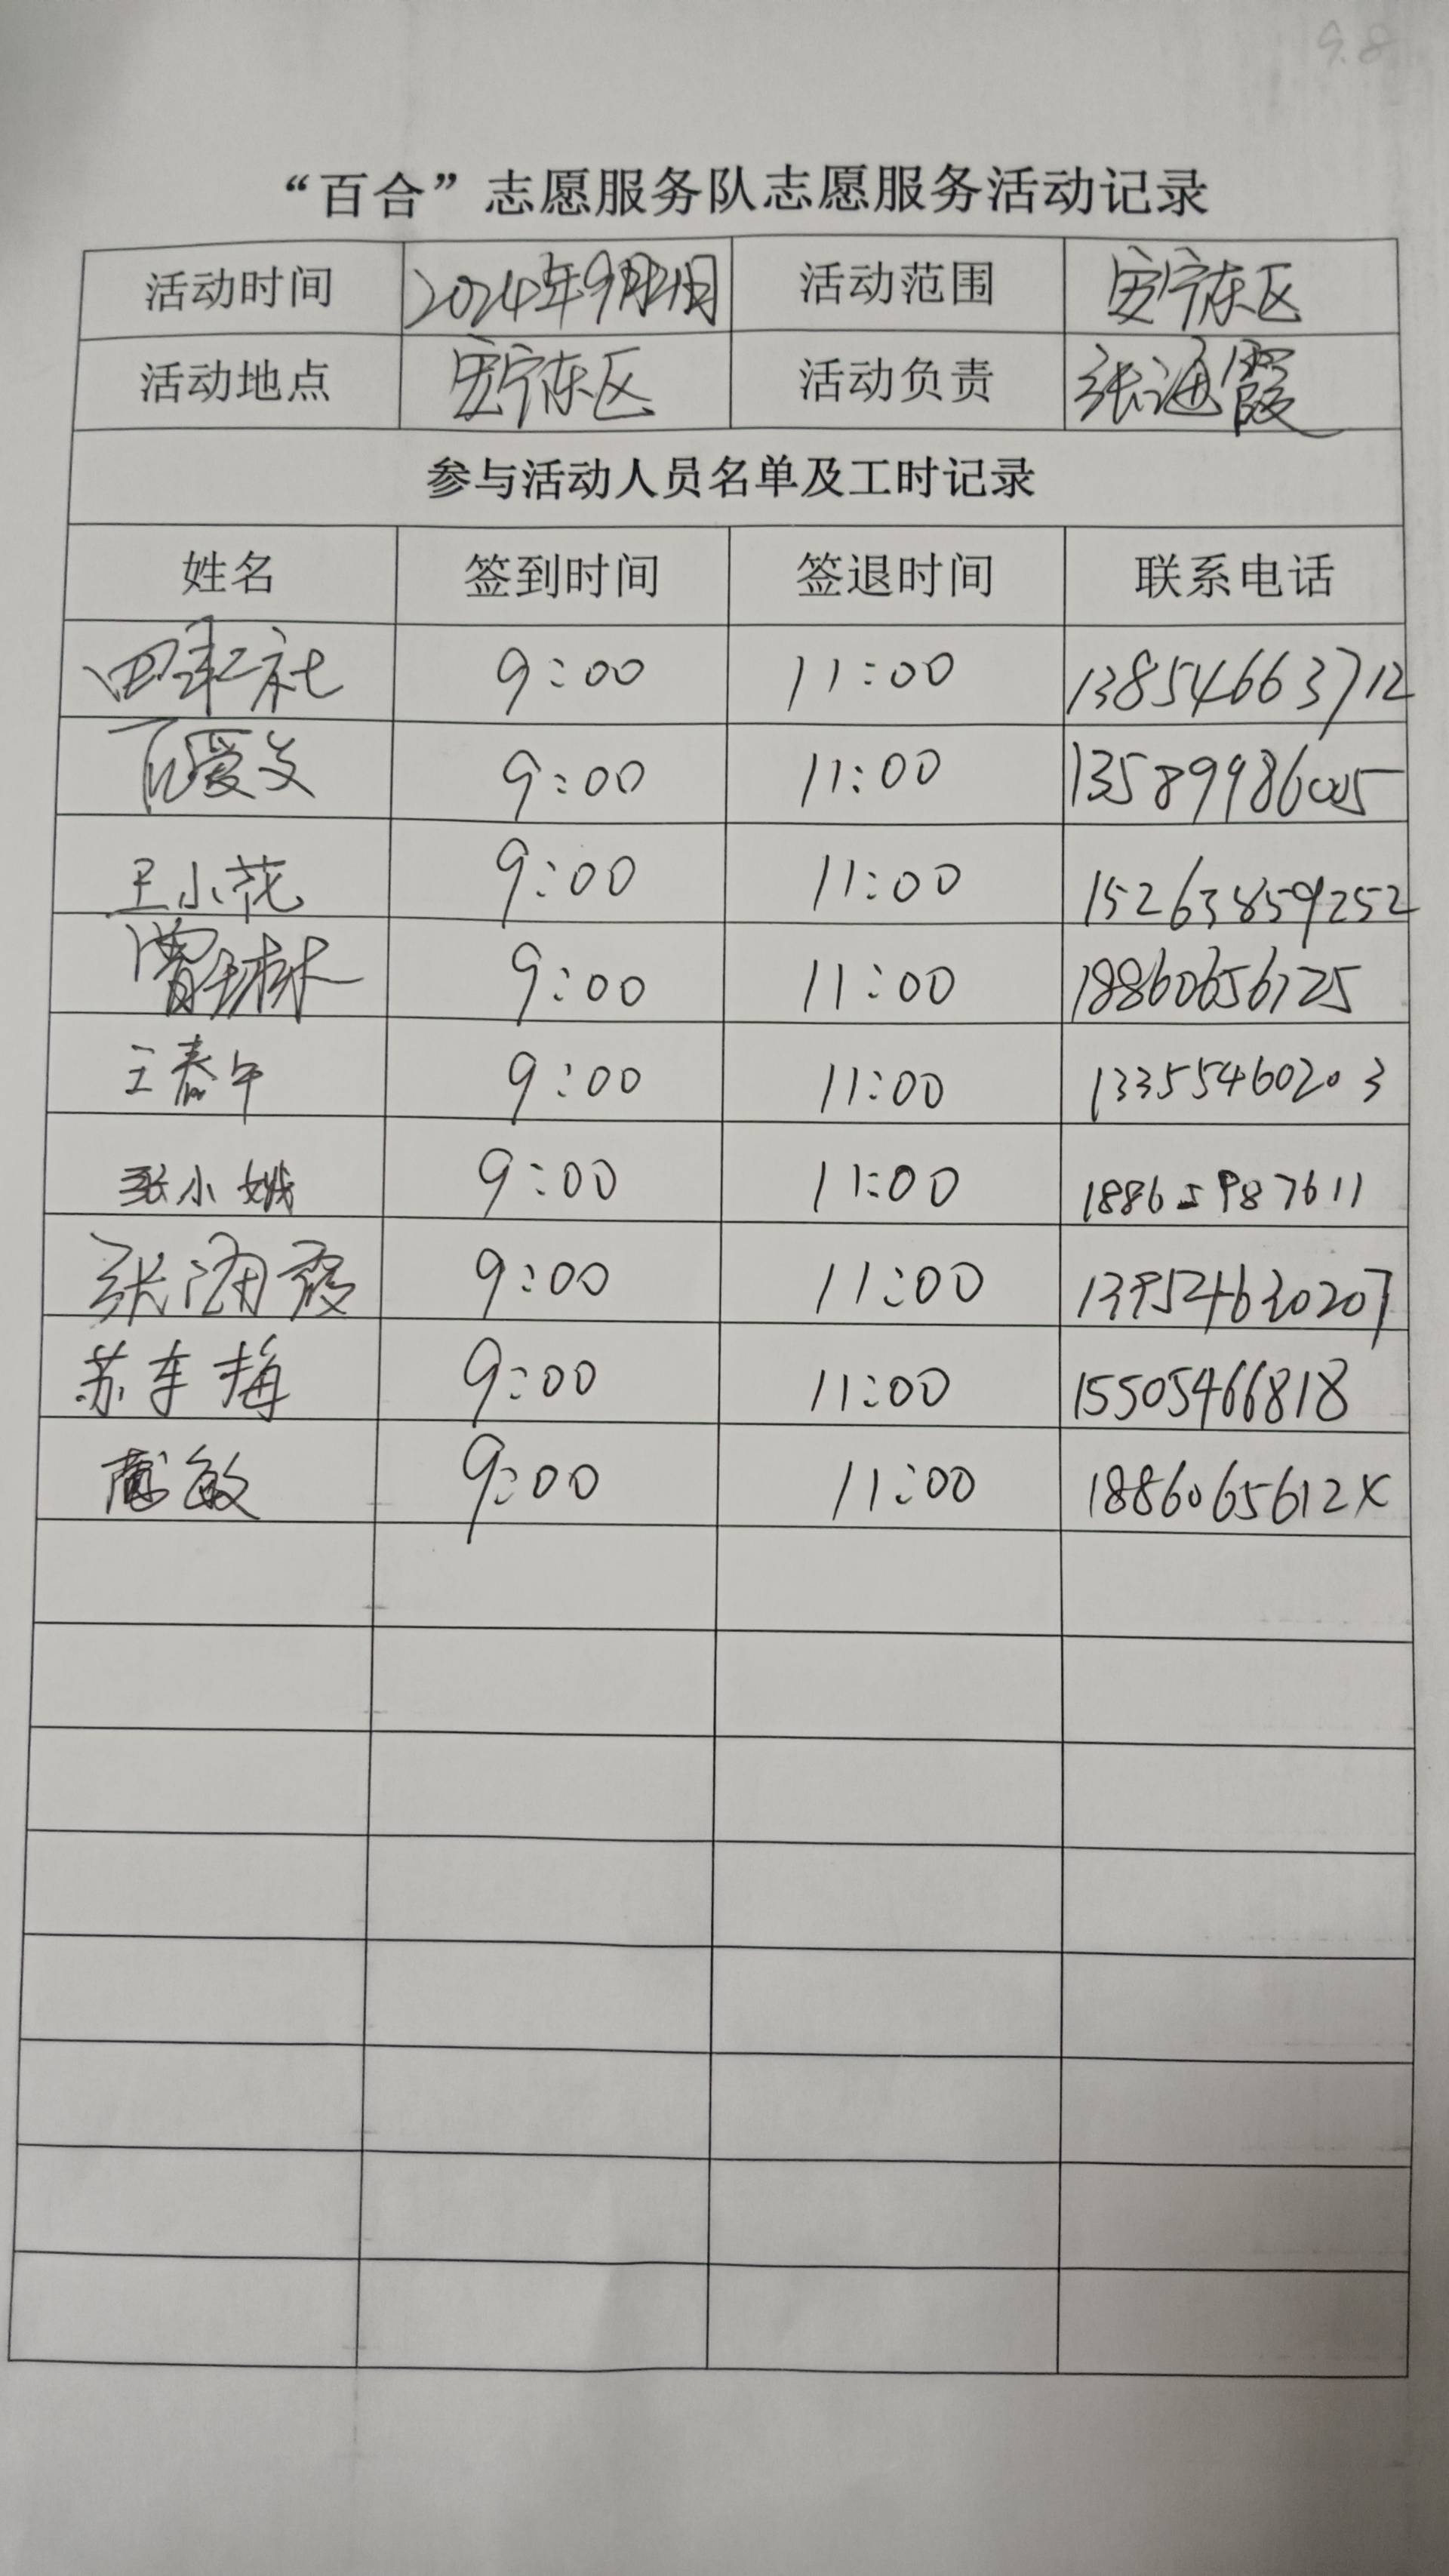 9.8
“百合”志愿服务队志愿服务活动记录
活动时间 2024年9月21日 活动范围 安宁东区
活动地点 安宁东区 活动负责 张海霞
参与活动人员名单及工时记录
姓名 签到时间 签退时间 联系电话
9:00 11:00 13854663712
爱文 9:00 11:00 13589986005
王小花 9:00 11:00 15263859252
曹林 9:00 11:00 18860656125
王春午 9:00 11:00 13355460203
张小娥 9:00 11:00 18865987611
张海霞 9:00 11:00 13954630207
苏车梅 9:00 11:00 15505466818
敏 9:00 11:00 1886065612X